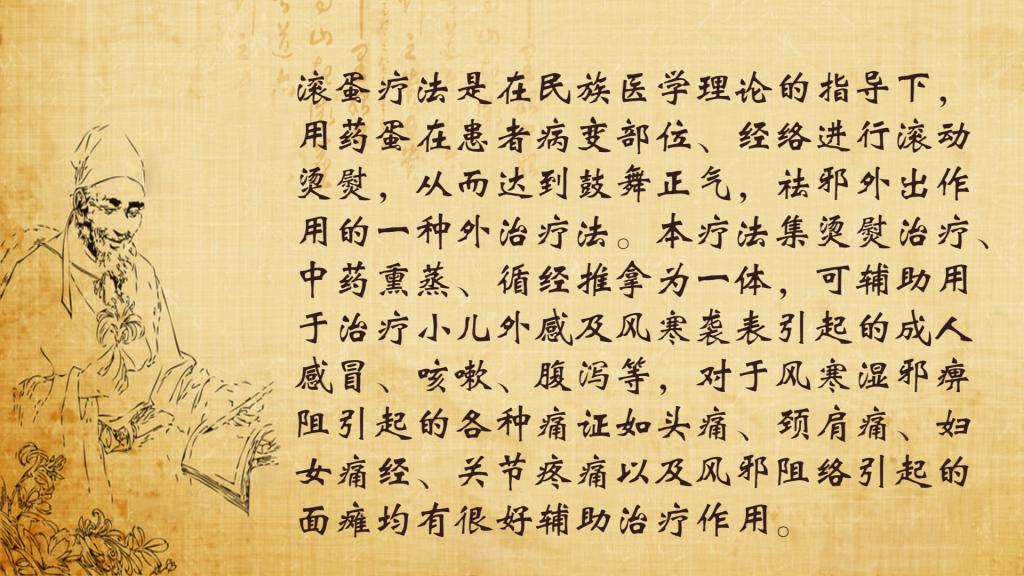 滚蛋疗法是在民族医学理论的指导下，
用药蛋在患者病变部位、经络进行滚动
烫熨，从而达到鼓舞正气，祛邪外出作
用的一种外治疗法。本疗法集烫熨治疗、
中药熏蒸、循经推拿为一体，可辅助用
于治疗小儿外感及风寒袭表引起的成人
感冒、咳嗽、腹泻等，对于风寒湿邪痹
阻引起的各种痛证如头痛、颈肩痛、妇
女痛经、关节疼痛以及风邪阻络引起的
面瘫均有很好辅助治疗作用。